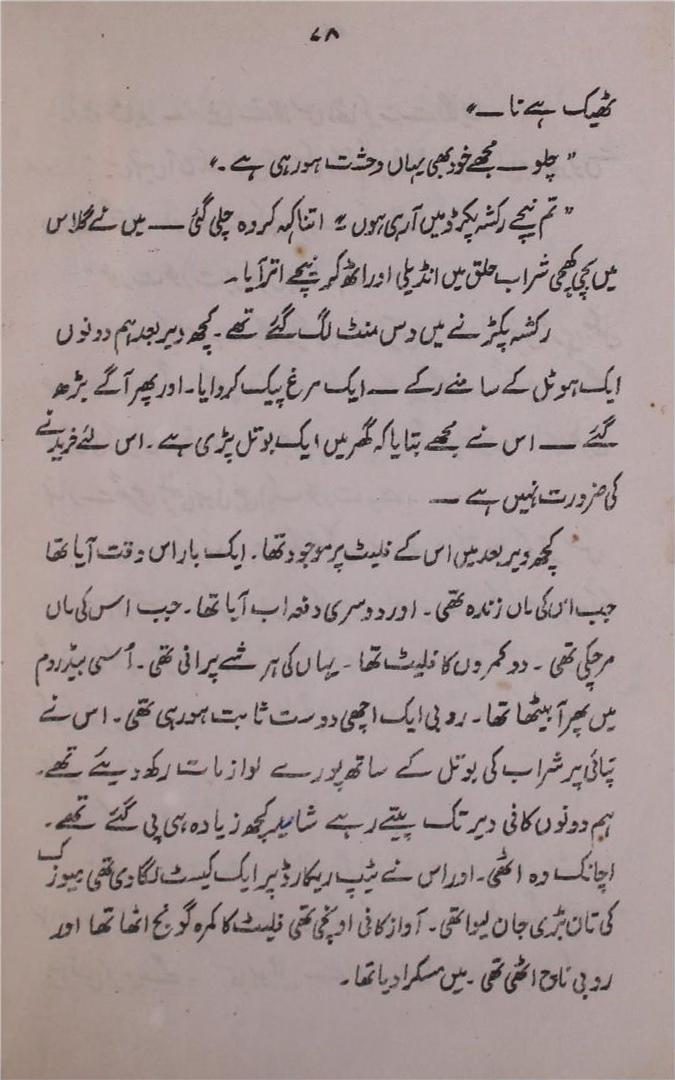 ۷۸
ٹھیک ہے نا ــ"
"چلو ــ مجھے خود بھی یہاں وحشت ہو رہی ہے۔"
"تم نیچے رکشہ پکڑو میں آ رہی ہوں" اتنا کہہ کر وہ چلی گئی ــ میں نے گلاس
میں بچی کھچی شراب حلق میں انڈیلی اور اٹھ کر نیچے اتر آیا۔
رکشہ پکڑنے میں دس منٹ لگ گئے تھے۔ کچھ دیر بعد ہم دونوں
ایک ہوٹل کے سامنے رکے ــ ایک مرغ پیک کروایا۔ اور پھر آگے بڑھ
گئے ــ اس نے مجھے بتایا کہ گھر میں ایک بوتل پڑی ہے۔ اس لئے خریدنے
کی ضرورت نہیں ہے ــ
کچھ دیر بعد میں اس کے فلیٹ پر موجود تھا۔ ایک بار اس وقت آیا تھا
جب اس کی ماں زندہ تھی۔ اور دوسری دفعہ اب آیا تھا۔ جب اس کی ماں
مر چکی تھی۔ دو کمروں کا فلیٹ تھا۔ یہاں کی ہر شے پرانی تھی۔ اُسی بیڈ روم
میں پھر آ بیٹھا تھا۔ روبی ایک اچھی دوست ثابت ہو رہی تھی۔ اس نے
تپائی پر شراب کی بوتل کے ساتھ پورے لوازمات رکھ دیئے تھے۔
ہم دونوں کافی دیر تک پیتے رہے شاید کچھ زیادہ ہی پی گئے تھے۔
اچانک وہ اٹھی۔ اور اس نے ٹیپ ریکارڈ پر ایک کیسٹ لگا دی تھی میوزک
کی تان بڑی جان لیوا تھی۔ آواز کافی اونچی تھی فلیٹ کا کمرہ گونج اٹھا تھا اور
روبی ناچ اٹھی تھی۔ میں مسکرا دیا تھا۔